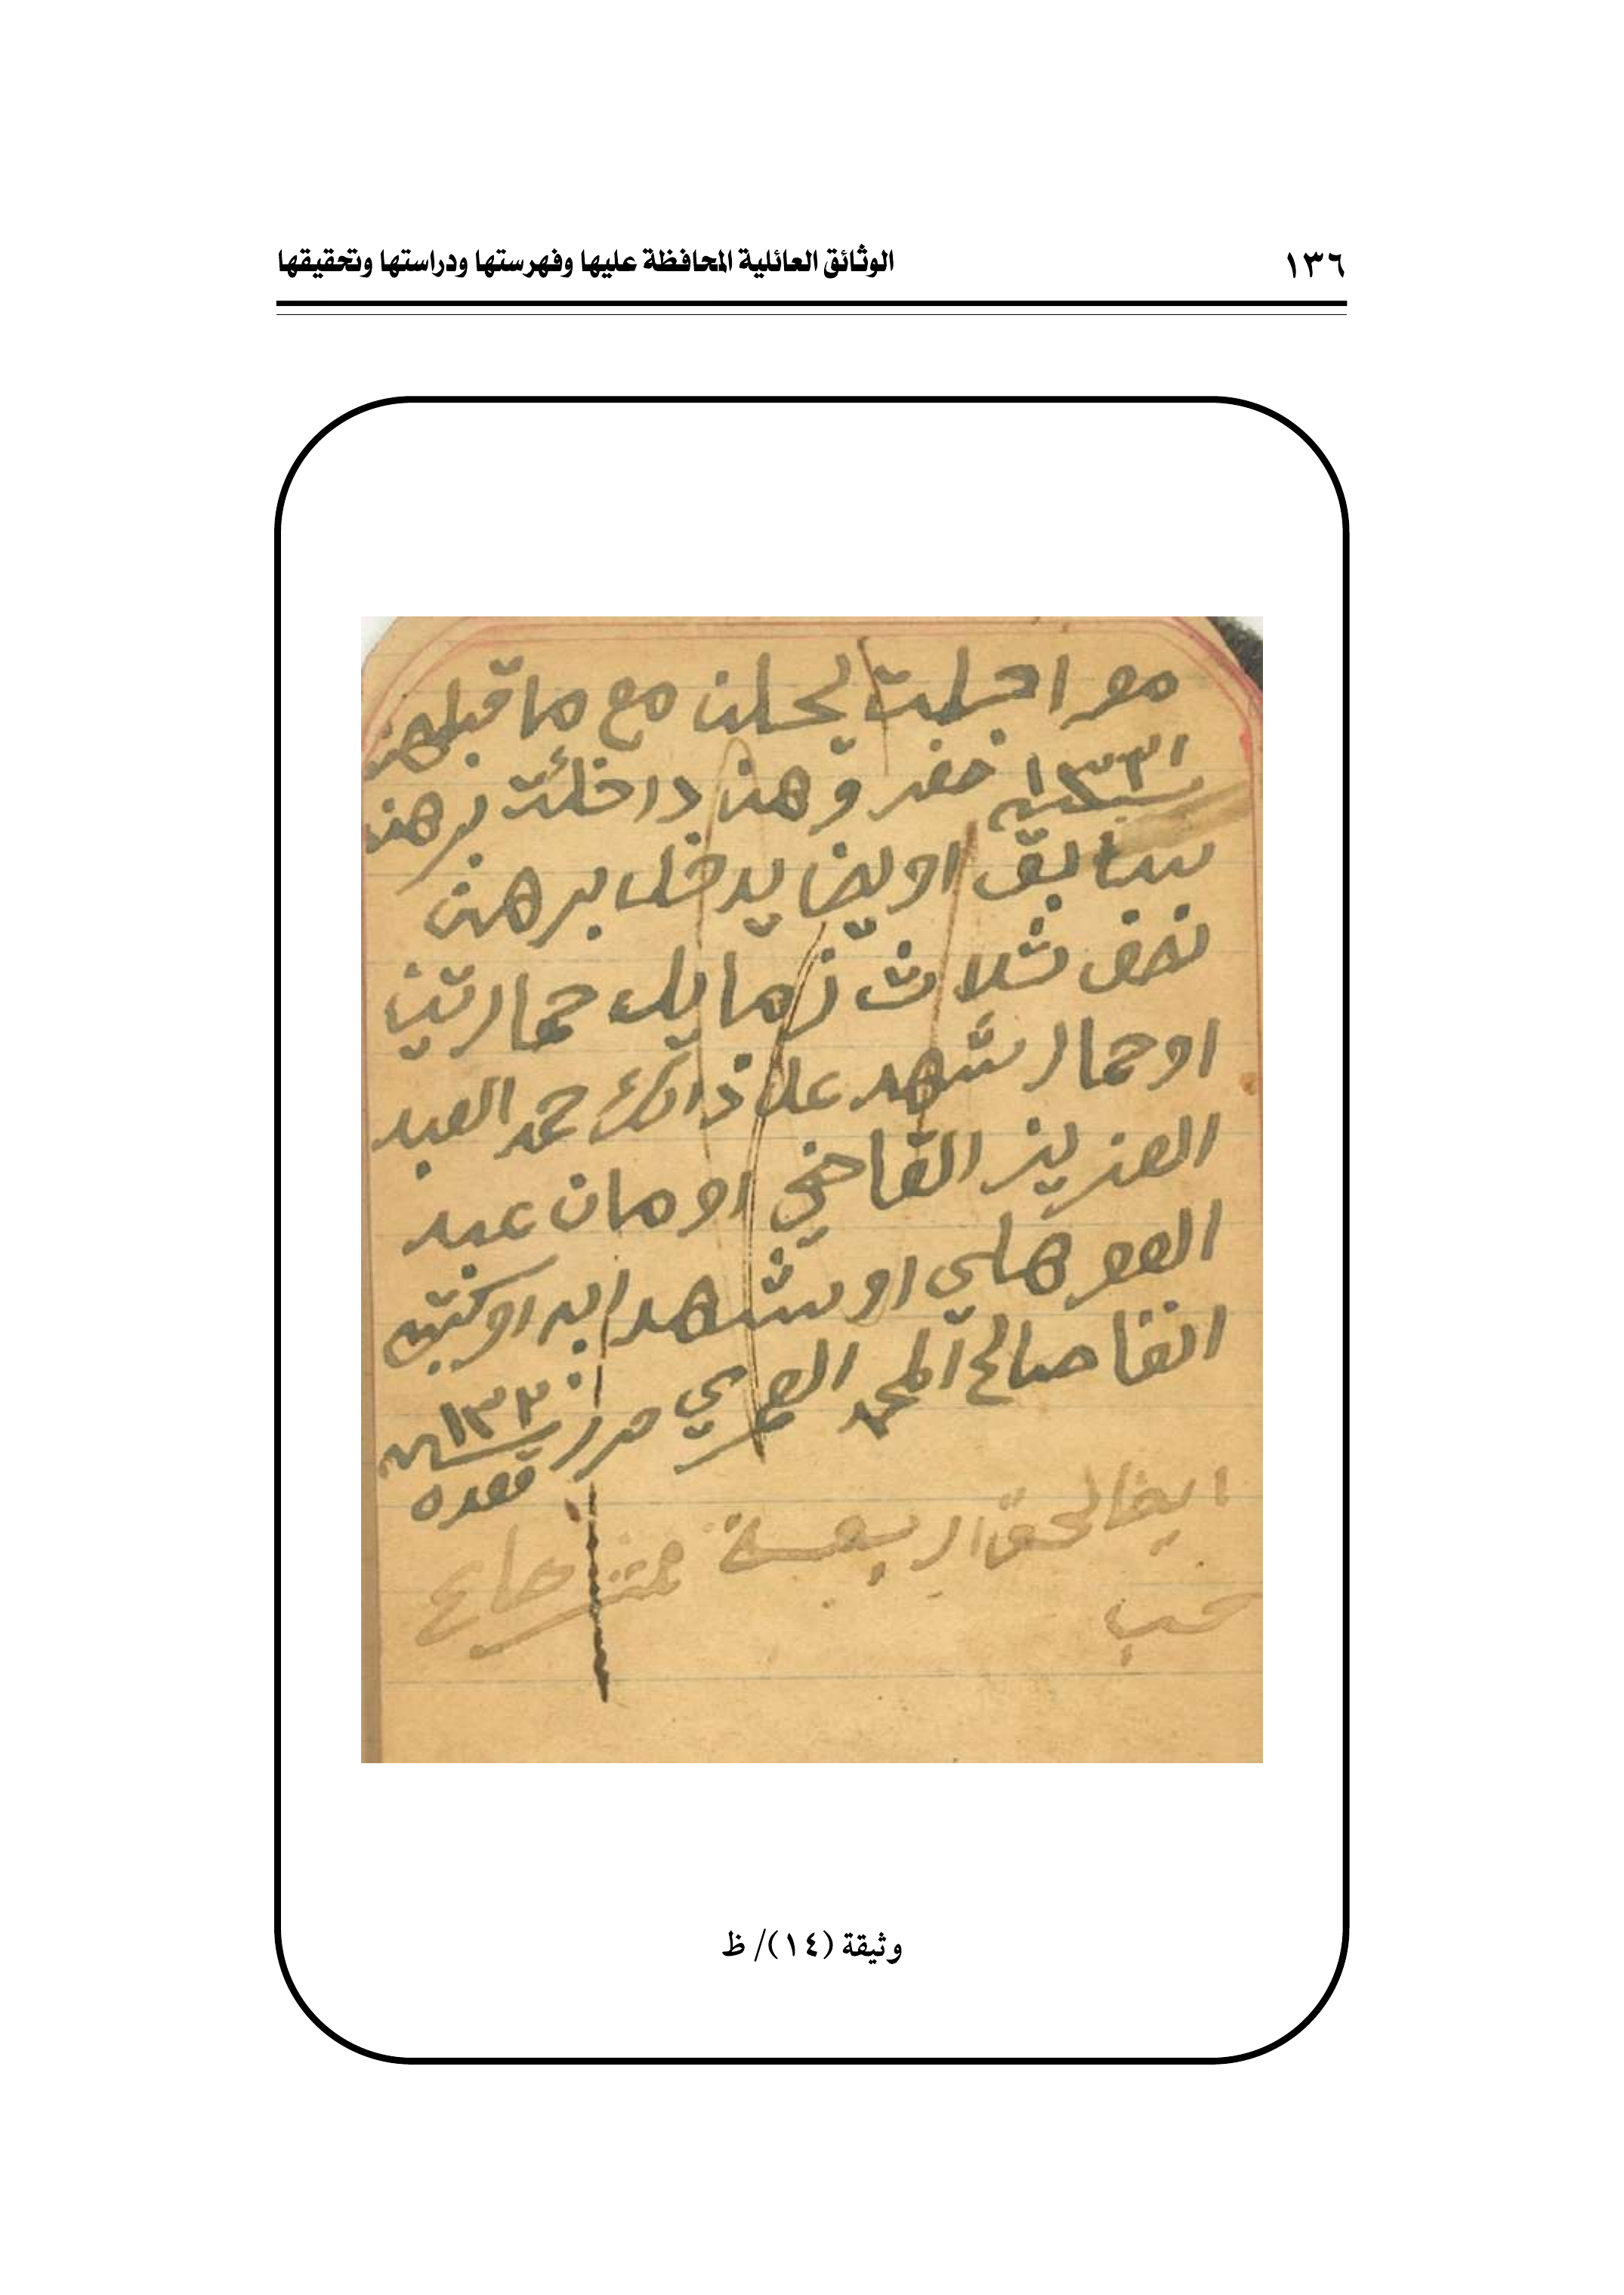 ١٣٦
الوثائق العائلية المحافظة عليها وفهرستها ودراستها وتحقيقها
مع اجلت يحلن مع ما قبلهن
١٣٣١ خضر وهن داخلت برهن
سابق اويضا يدخل برهن
نصف ثلاث زمايل حمارتين
اوحمار شهد علا ذالك حمد العبد
العزيز القاضي اومان عبد
العوهلي او شهدابه اوكتبه
صالح المحمد العمري حرر ١٣٣٠
قعده
ايضا لحق اربعة صاع
حب
وثيقة (١٤)/ ظ